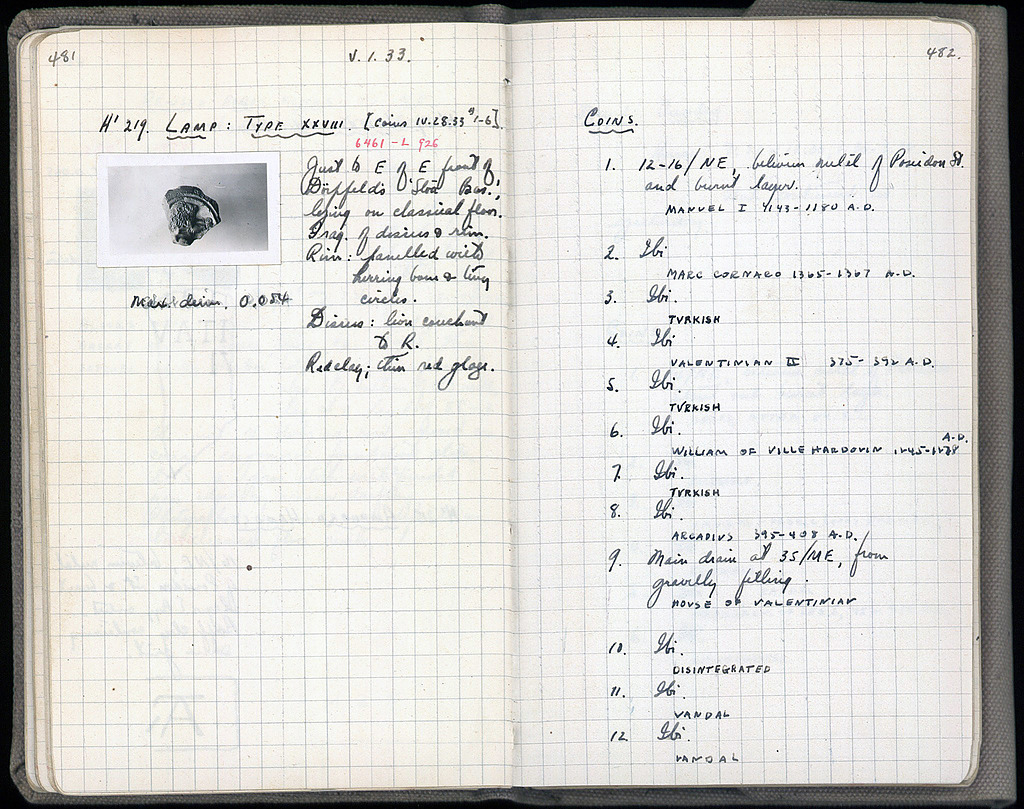 481
V. 1. 33.
H' 219. LAMP: TYPE XXVIII. [Coins IV.28.33 #1-6].
6461 - L 926
Just to E of E front of
Dörpfeld's 'Stoa Bas.',
lying on classical floor.
Frag. of discus & rim.
Rim: panelled with
herring bone & tiny
circles.
Discus: lion couchant
to R.
Red clay; thin red glaze.
Max. dim. 0.054
482.
COINS.
1. 12-16/NE, between of Poseidon St.
and burnt layer.
MANUEL I 1143-1180 A.D.
2. Ibi
MARC CORNARO 1365-1367 A.D.
3. Ibi.
TURKISH
4. Ibi
VALENTINIAN II 375-392 A.D.
5. Ibi.
TURKISH
6. Ibi.
WILLIAM OF VILLE HARDOUIN 1245-1278 A.D.
7. Ibi.
TURKISH
8. Ibi.
ARCADIUS 395-408 A.D.
9. Main drain at 35/ME, from
gravelly filling.
HOUSE OF VALENTINIAN
10. Ibi.
DISINTEGRATED
11. Ibi.
VANDAL
12. Ibi.
VANDAL